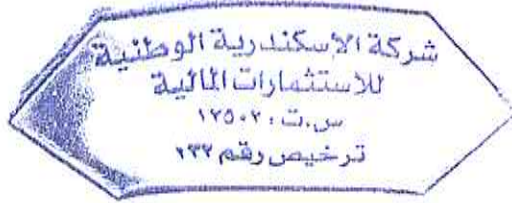 شركة الإسكندرية الوطنية
للاستثمارات المالية
س.ت: ١٢٥٠٢
ترخيص رقم ٢٣٢